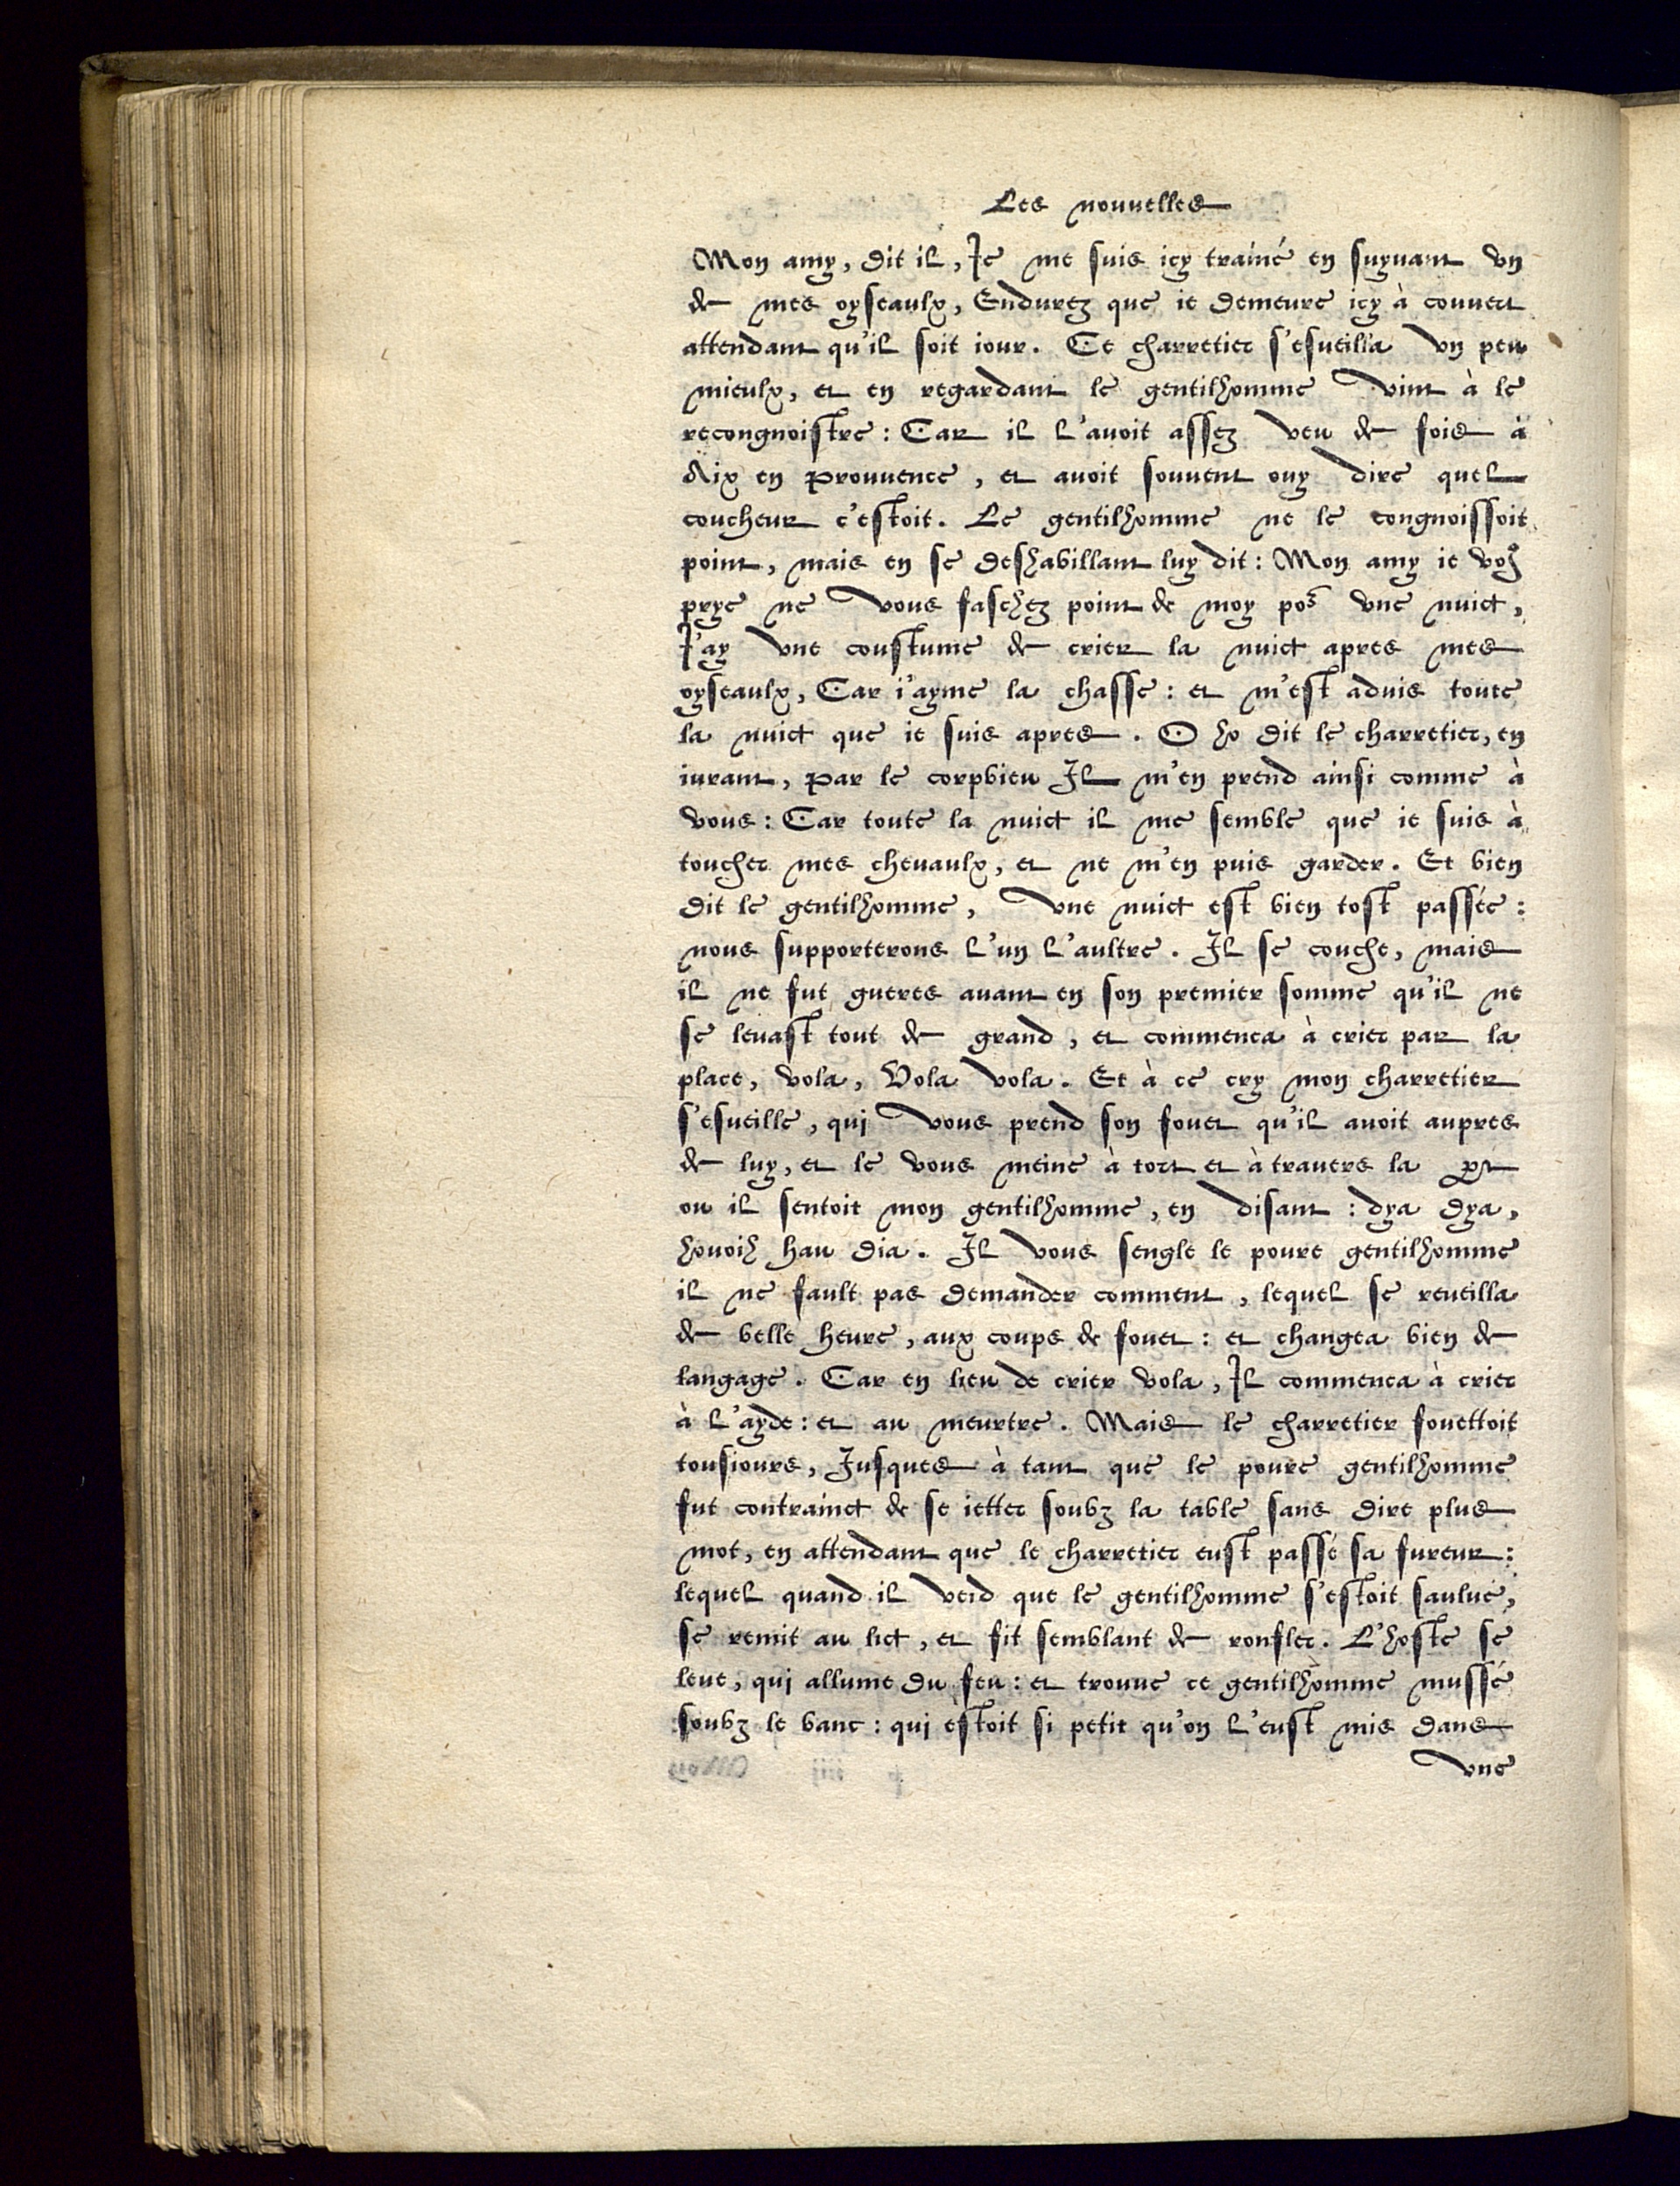 Les nouuelles
Mon amy, dit il, Je me suis icy trainé en suyuant vn
de mes oyseaulx, Endurez que ie demeure icy à couuert
attendant qu'il soit iour. Ce charretier s'esueilla vn peu
mieulx, et en regardant le gentilhomme vint à le
recongnoistre : Car il l'auoit assez veu de fois à
Aix en Prouuence, et auoit souuent ouy dire quel
coucheur c'estoit. Le gentilhomme ne le congnoissoit
point, mais en se deshabillant luy dit : Mon amy ie voꝰ
prye ne vous faschez point de moy por vne nuict,
J'ay vne coustume de crier la nuict apres mes
oyseaulx, Car i'ayme la chasse : et m'est aduis toute
la nuict que ie suis apres. O ho dit le charretier, en
iurant, Par le corpbieu Il m'en prend ainsi comme à
vous : Car toute la nuict il me semble que ie suis à
toucher mes cheuaulx, et ne m'en puis garder. Et bien
dit le gentilhomme, vne nuict est bien tost passée :
nous supporterons l'un l'aultre. Il se couche, mais
il ne fut gueres auant en son premier somme qu'il ne
se leuast tout de grand, et commenca à crier par la
place, vola, Vola vola. Et à ce cry mon charretier
s'esueille, qui vous prend son fouet qu'il auoit aupres
de luy, et le vous meine à tort et à trauers la ꝑt
ou il sentoit mon gentilhomme, en disant : dya dya,
houoih hau dia. Il vous sengle le poure gentilhomme
il ne fault pas demander comment, lequel se reueilla
de belle heure, aux coups de fouet : et changea bien de
langage. Car en lieu de crier vola, Il commenca à crier
à l'ayde : et au meurtre. Mais le charretier fouettoit
tousiours, Jusques à tant que le poure gentilhomme
fut contrainct de se ietter soubz la table sans dire plus
mot, en attendant que le charretier eust passé sa fureur :
lequel quand il veid que le gentilhomme s'estoit saulué,
se remit au lict, et fit semblant de ronfler. L'hoste se
leue, qui allume du feu : et trouue ce gentilhomme mussé
soubz le banc : qui estoit si petit qu'on l'eust mis dans
vne